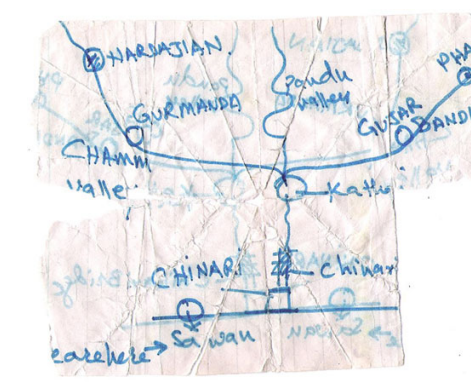 HARDAJIAN.
Pandu
valley
GURMANDA
GUJAR
BANDI
CHAMM
Valle
Kathi
CHINARI
Chinari
Sawan
earehere→